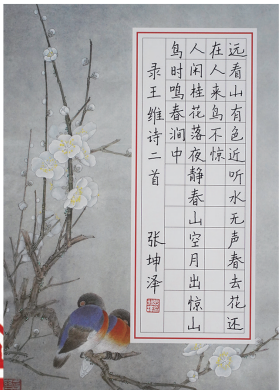 远看山有色近听水无声春去花还
在人来鸟不惊
人闲桂花落夜静春山空月出惊山
鸟时鸣春涧中
录王维诗二首 张坤泽